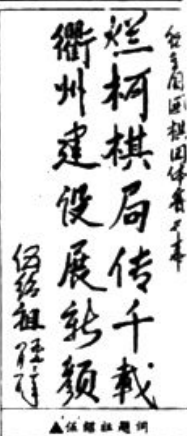 贺全国围棋团体赛大事
烂柯棋局传千载
衢州建设展新颜
伍绍祖
▲伍绍祖题词